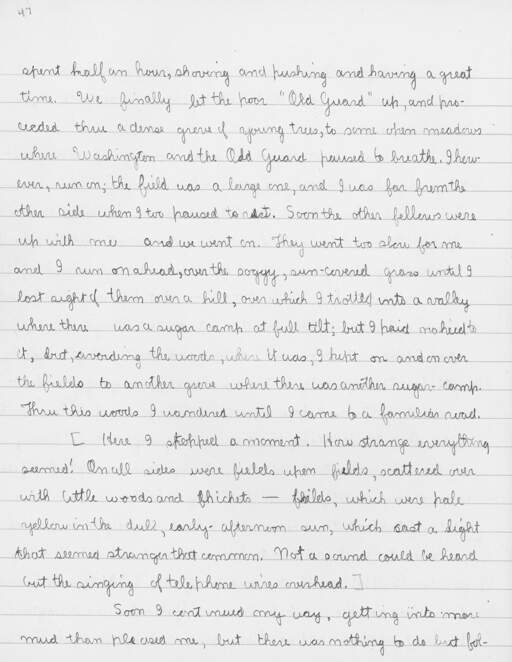 47
spent half an hour, shoving and pushing and having a great
time. We finally let the poor "Old Guard" up, and pro-
ceeded thru a dense grove of young trees, to some open meadows
where Washington and the Old Guard paused to breathe. I how-
ever, run on; the field was a large one, and I was far from the
other side when I too paused to rest. Soon the other fellows were
up with me and we went on. They went too slow for me
and I run on ahead, over the soggy, sun-covered grass until I
lost sight of them over a hill, over which I trotted into a valley
where there was a sugar camp at full tilt; but I paid no heed to
it, but, avoiding the woods, where it was, I kept on and on over
the fields to another grove where there was another sugar-camp.
Thru this woods I wandered until I came to a familiar road.
[ Here I stopped a moment. How strange everything
seemed! On all sides were fields upon fields, scattered over
with little woods and thickets — fields, which were pale
yellow in the dull, early-afternoon sun, which cast a light
that seemed stranger that common. Not a sound could be heard
but the singing of telephone wires overhead. ]
Soon I continued my way, getting into more
mud than pleased me, but there was nothing to do but fol-